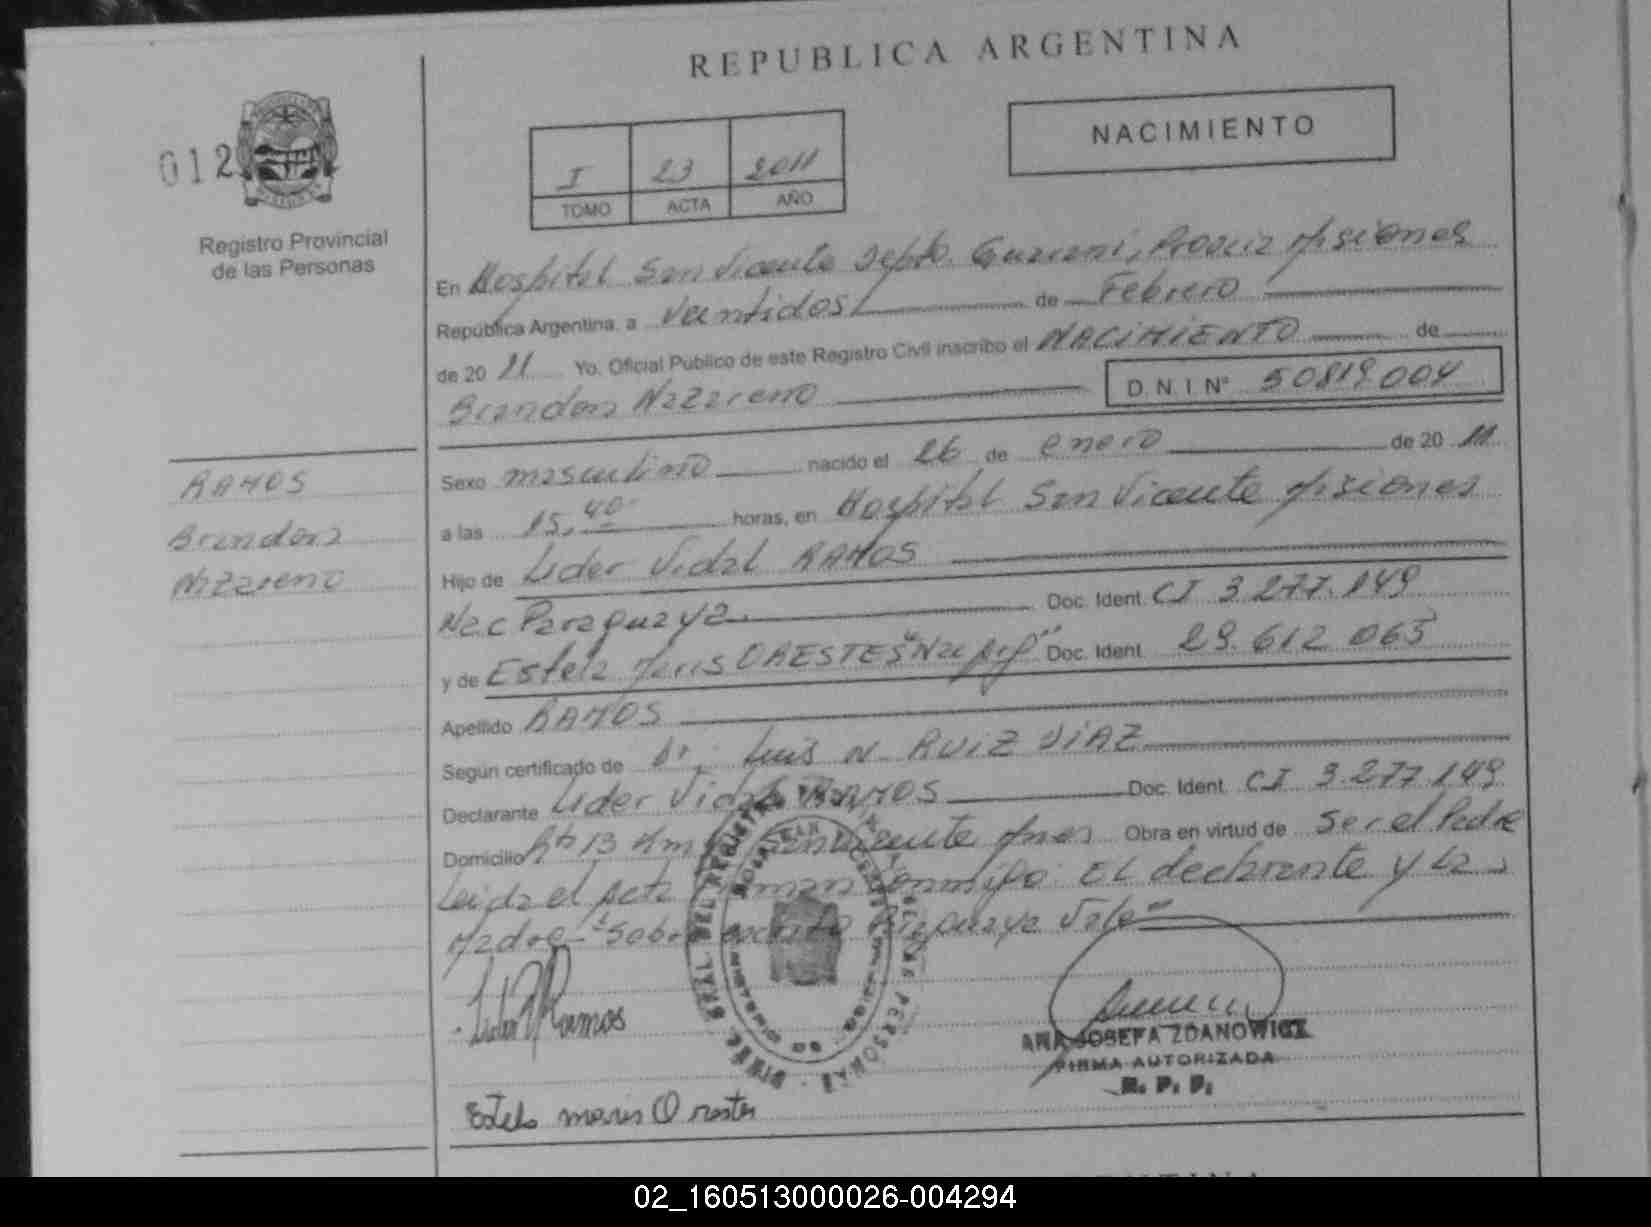 REPUBLICA ARGENTINA
012
Registro Provincial
de las Personas
I 23 2011
TOMO ACTA AÑO
NACIMIENTO
En Hospital San Vicente Depto. Guarani, Misiones
República Argentina, a Veintidos de Febrero
de 20 11 Yo, Oficial Público de este Registro Civil inscribo el NACIMIENTO de
Brandon Nazareno D.N.I Nº 50819004
RAMOS
Brandon
Nazareno
Sexo masculino nacido el 26 de enero de 20 11
a las 15,40 horas, en Hospital San Vicente Misiones
Hijo de Lider Vidal RAMOS
Nac Paraguaya Doc. Ident. CI 3.277.149
y de Estela Maris ORESTES Doc. Ident. 29.612.063
Apellido RAMOS
Según certificado de Dr. Luis N. RUIZ DIAZ
Declarante Lider Vidal RAMOS Doc. Ident. CI 3.277.149
Domicilio 13 Km San Vicente Mnes Obra en virtud de Ser el Padre
Leida el acta firman conmigo El declarante y la
Madre Sobre Paraguaya Vale
Lider V Ramos
ANA JOSEFA ZDANOWICZ
FIRMA AUTORIZADA
R. P. P.
Estela maris Orestes
02_160513000026-004294